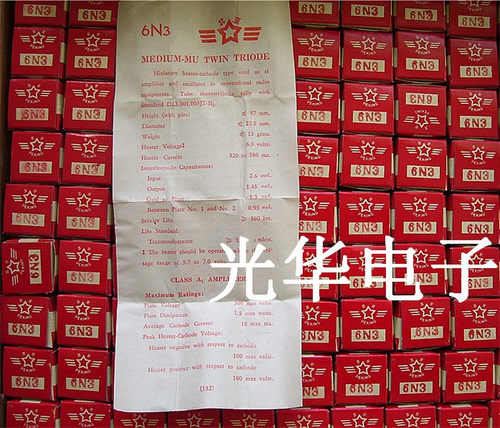 6N3
北京
PEKING
MEDIUM-MU TWIN TRIODE
Miniature heater-cathode type used as rf
amplifier and oscillator in conventional radio
equipments. Tube characteristics tally with
Standard
Height (with pins) ≤ 57 mm.
Diameter ≤ 22.5 mm.
Weight ≤ 15 gms.
Heater Voltage‡ 6.3 volts.
Heater Current 320 to 380 ma.
Interelectrode Capacitances:
Input 2.6 uuf.
Output 1.45 uuf.
Grid to Plate 1.3 uuf.
Between Plate No. 1 and No. 2 0.95 uuf.
Service Life ≥ 500 hrs.
Life Standard:
Transconductance ≥
‡ The heater should be operated
tage range of 5.7 to 7.0
CLASS A₁ AMPLIFIER
Maximum Ratings:
Plate Voltage 300 max volts.
Plate Dissipation 1.5 max watts.
Average Cathode Current 18 max ma.
Peak Heater-Cathode Voltage:
Heater negative with respect to cathode
100 max volts.
Heater positive with respect to cathode
100 max volts.
(132)
光华电子
6N3
PEKING